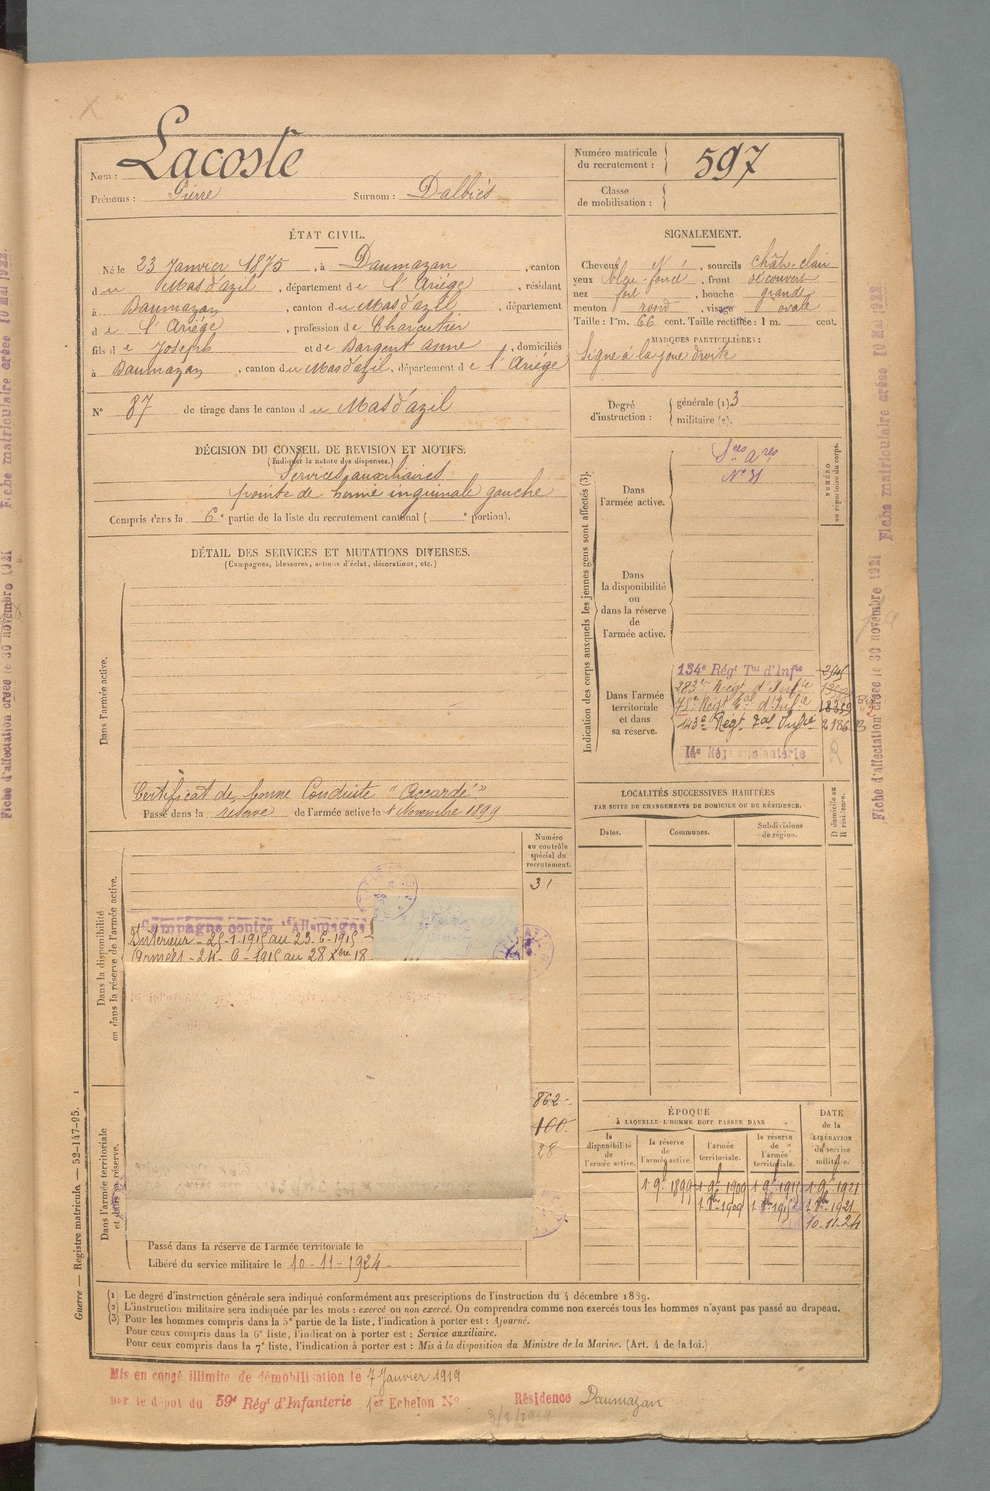 Lacoste
Nom :
Prénoms : Pierre Surnom : Dalbiès
Numéro matricule du recrutement : 597
Classe de mobilisation :
ÉTAT CIVIL.
Né le 23 Janvier 1875, à Daumazan, canton
du Mas d'azil, département de l'Ariège, résidant
à Daumazan, canton du Mas d'azil, département
de l'Ariège, profession de Charcutier
fils de Joseph et de Dargent Anne, domiciliés
à Daumazan, canton du Mas d'azil, département de l'Ariège
N° 87 de tirage dans le canton du Mas d'azil
SIGNALEMENT.
Cheveux, sourcils chât-clair
yeux bleu-foncé, front découvert
nez fort, bouche grande
menton rond, visage ovale
Taille : 1 m. 66 cent. Taille rectifiée : 1 m. cent.
MARQUES PARTICULIÈRES :
Signe à la joue droite
Degré d'instruction : générale (1) 3
militaire (2).
DÉCISION DU CONSEIL DE REVISION ET MOTIFS.
(Indiquer la nature des dispenses.)
Services auxiliaires
pointe de hernie inguinale gauche
Compris dans la 6e partie de la liste du recrutement cantonal ( e portion).
DÉTAIL DES SERVICES ET MUTATIONS DIVERSES.
(Campagnes, blessures, actions d'éclat, décorations, etc.)
Dans l'armée active.
Certificat de bonne Conduite "Accordé"
Passé dans la réserve de l'armée active le 1 Novembre 1899
Indication des corps auxquels les jeunes gens sont affectés (3).
NUMÉRO
au répertoire du corps.
Dans
l'armée active.
Sces ares
N° 31
Dans
la disponibilité
ou
dans la réserve
de
l'armée active.
Dans l'armée
territoriale
et dans
sa réserve.
134e Régt Tal d'Infie
283e Régt d'Infie
78e Régt Tal d'Infie
143e Régt Tal Infie
14e Régt Infanterie
LOCALITÉS SUCCESSIVES HABITÉES
PAR SUITE DE CHANGEMENTS DE DOMICILE OU DE RÉSIDENCE.
Dates.
Communes.
Subdivisions
de région.
D domicile ou
R résidence.
Numéro
au contrôle
spécial du
recrutement.
31
Dans la disponibilité
ou dans la réserve de l'armée active.
Campagne contre l'Allemagne
Intérieur - 25-1-1915 au 23-6-1915
Armées - 24-6-1915 au 28 Xbre 18
862
100
28
Dans l'armée territoriale
et dans sa réserve.
Passé dans la réserve de l'armée territoriale le
Libéré du service militaire le 10-11-1924
ÉPOQUE
À LAQUELLE L'HOMME DOIT PASSER DANS
la
disponibilité
de
l'armée active.
la réserve
de
l'armée active.
l'armée
territoriale.
la réserve
de
l'armée
territoriale.
DATE
de la
LIBÉRATION
du service
militaire.
1 9bre 1899
1 9bre 1909
1 9bre 1921
1921
10-11-24
Guerre — Registre matricule — 52-147-95.
(1) Le degré d'instruction générale sera indiqué conformément aux prescriptions de l'instruction du 4 décembre 1889.
(2) L'instruction militaire sera indiquée par les mots : exercé ou non exercé. On comprendra comme non exercés tous les hommes n'ayant pas passé au drapeau.
(3) Pour les hommes compris dans la 5e partie de la liste, l'indication à porter est : Ajourné.
Pour ceux compris dans la 6e liste, l'indication à porter est : Service auxiliaire.
Pour ceux compris dans la 7e liste, l'indication à porter est : Mis à la disposition du Ministre de la Marine. (Art. 4 de la loi.)
Mis en congé illimité de démobilisation le 7 Janvier 1919
par le dépôt du 59e Régt d'Infanterie 1er Echelon N° Résidence Daumazan
Fiche d'affectation créée le 30 novembre 1921
Fiche matriculaire créée 10 Mai 1922
Fiche d'affectation créée le 30 novembre 1921
Fiche matriculaire créée 10 Mai 1922